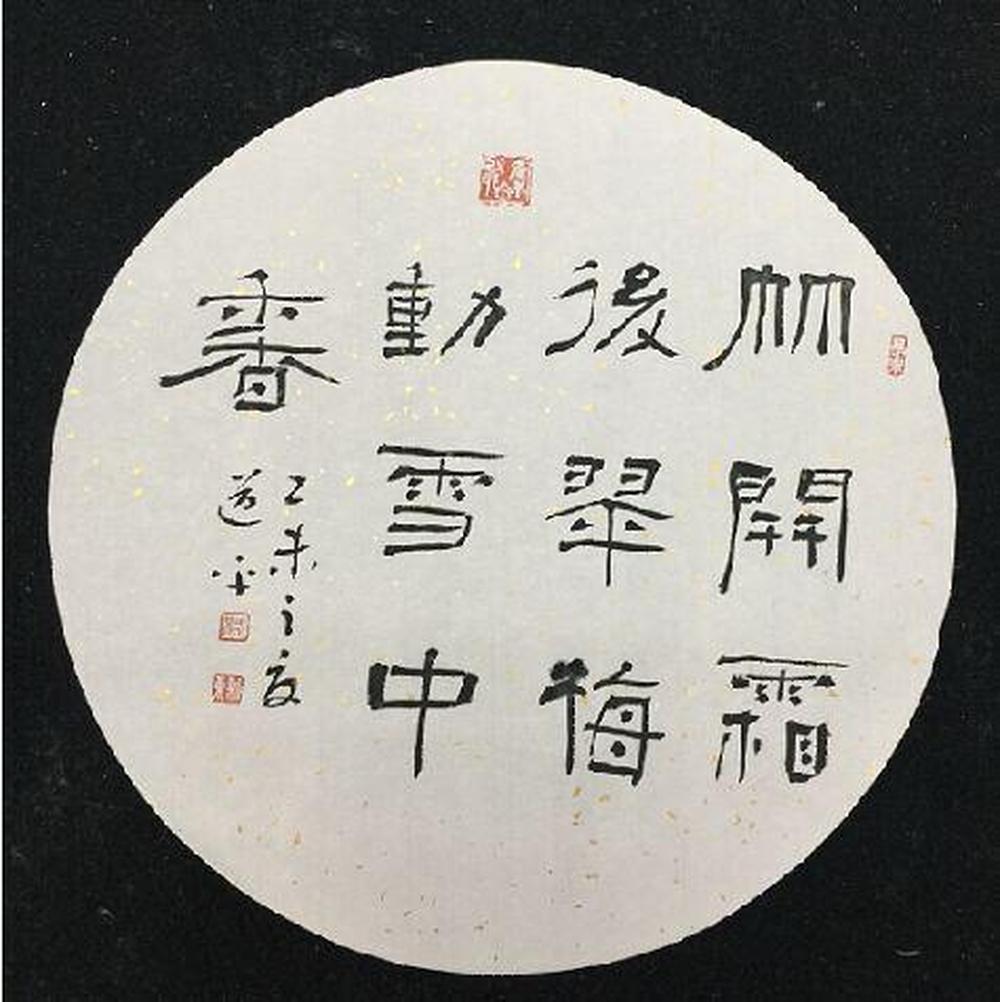 竹開霜
後翠梅
動雪中
香
乙未之夏
道平